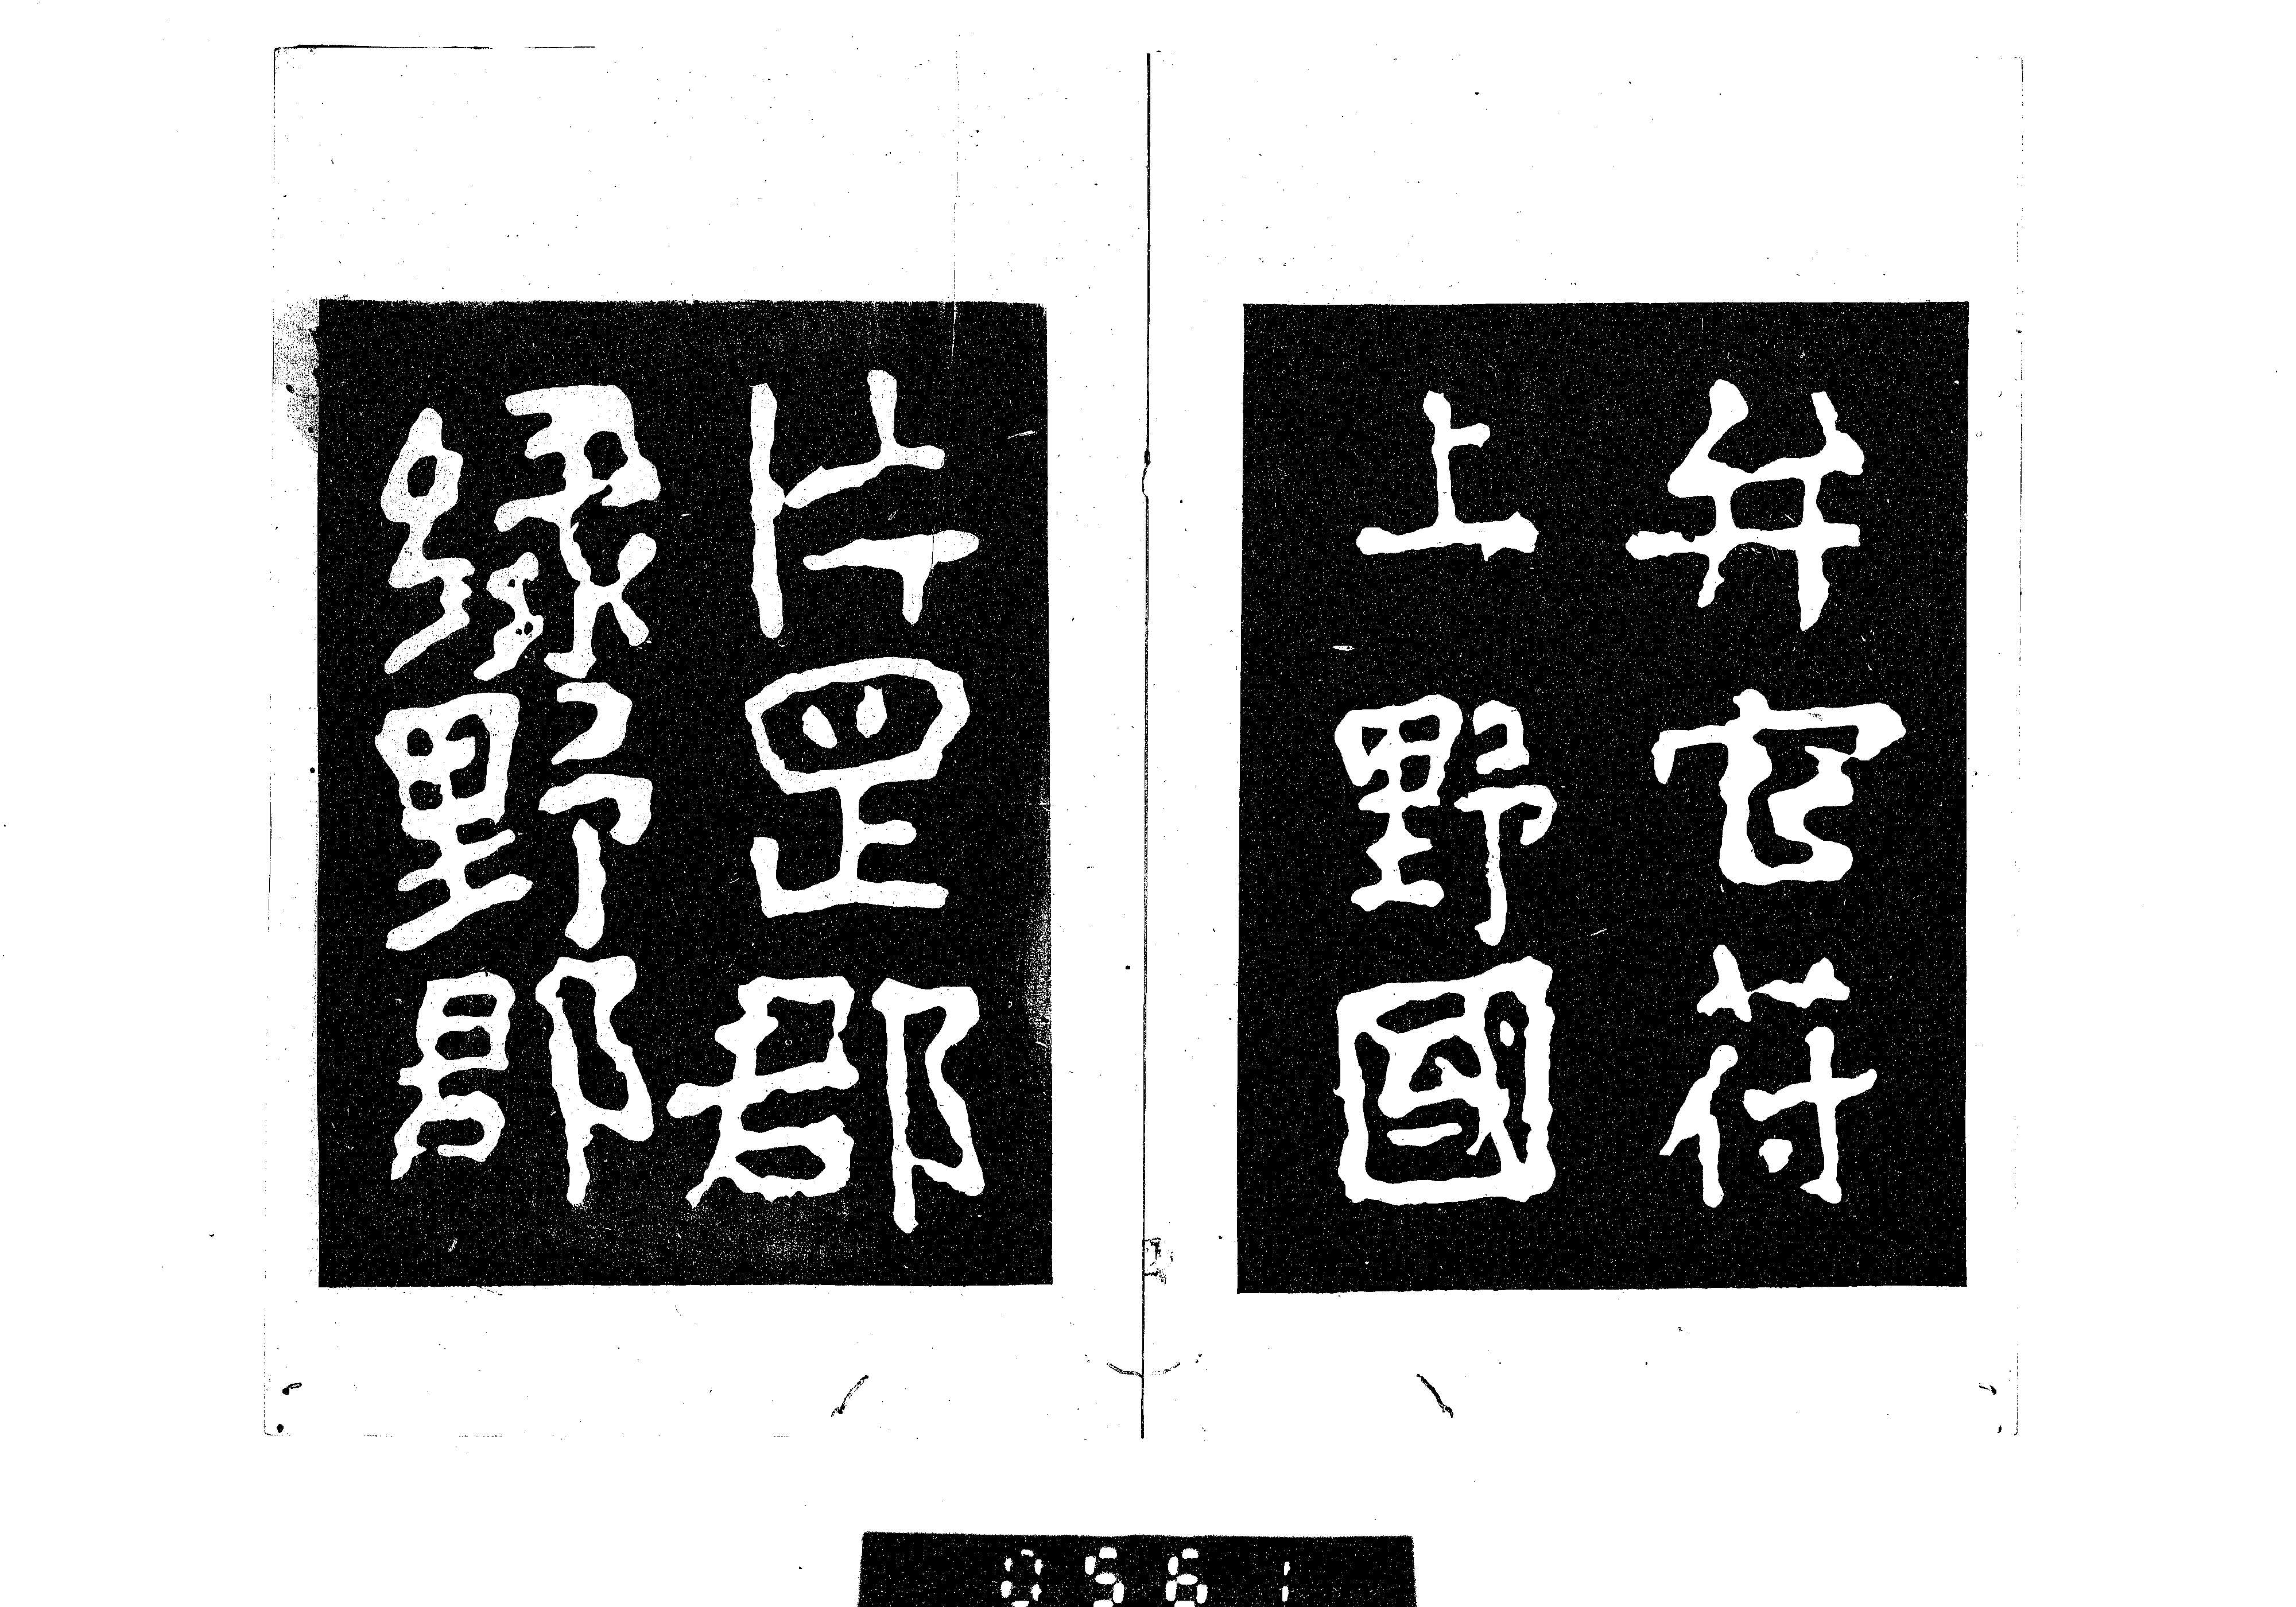 弁官苻
上野國
片罡郡
緑野郡
0561